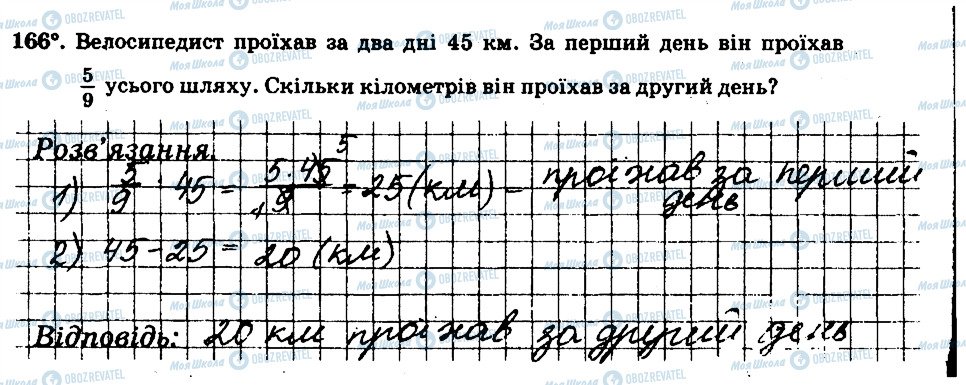 166°. Велосипедист проїхав за два дні 45 км. За перший день він проїхав
5/9 усього шляху. Скільки кілометрів він проїхав за другий день?
Розв'язання.
1) 5/9 · 45 = 5·45/9 = 25 (км) – проїхав за перший
день
2) 45 – 25 = 20 (км)
Відповідь: 20 км проїхав за другий день